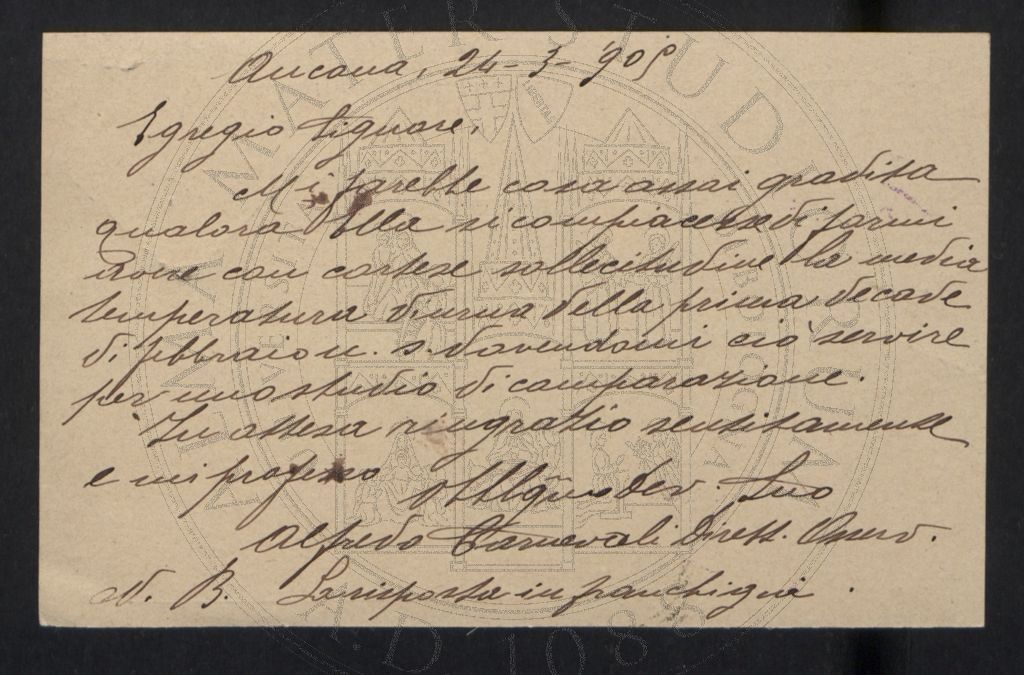 Ancona, 24-3-905
Egregio Signore,
Mi farebbe cosa assai gradita
qualora Ella si compiacesse di farmi
avere con cortese sollecitudine la media
temperatura diurna della prima decade
di febbraio u. s. dovendomi ciò servire
per uno studio di comparazione.
In attesa ringrazio sentitamente
e mi professo
Obblgmo dev. Suo
Alfredo Carnevali Dirett. Osserv.
N. B. La risposta in franchigia.
ALMA MATER STUDIORUM
A.D. 1088